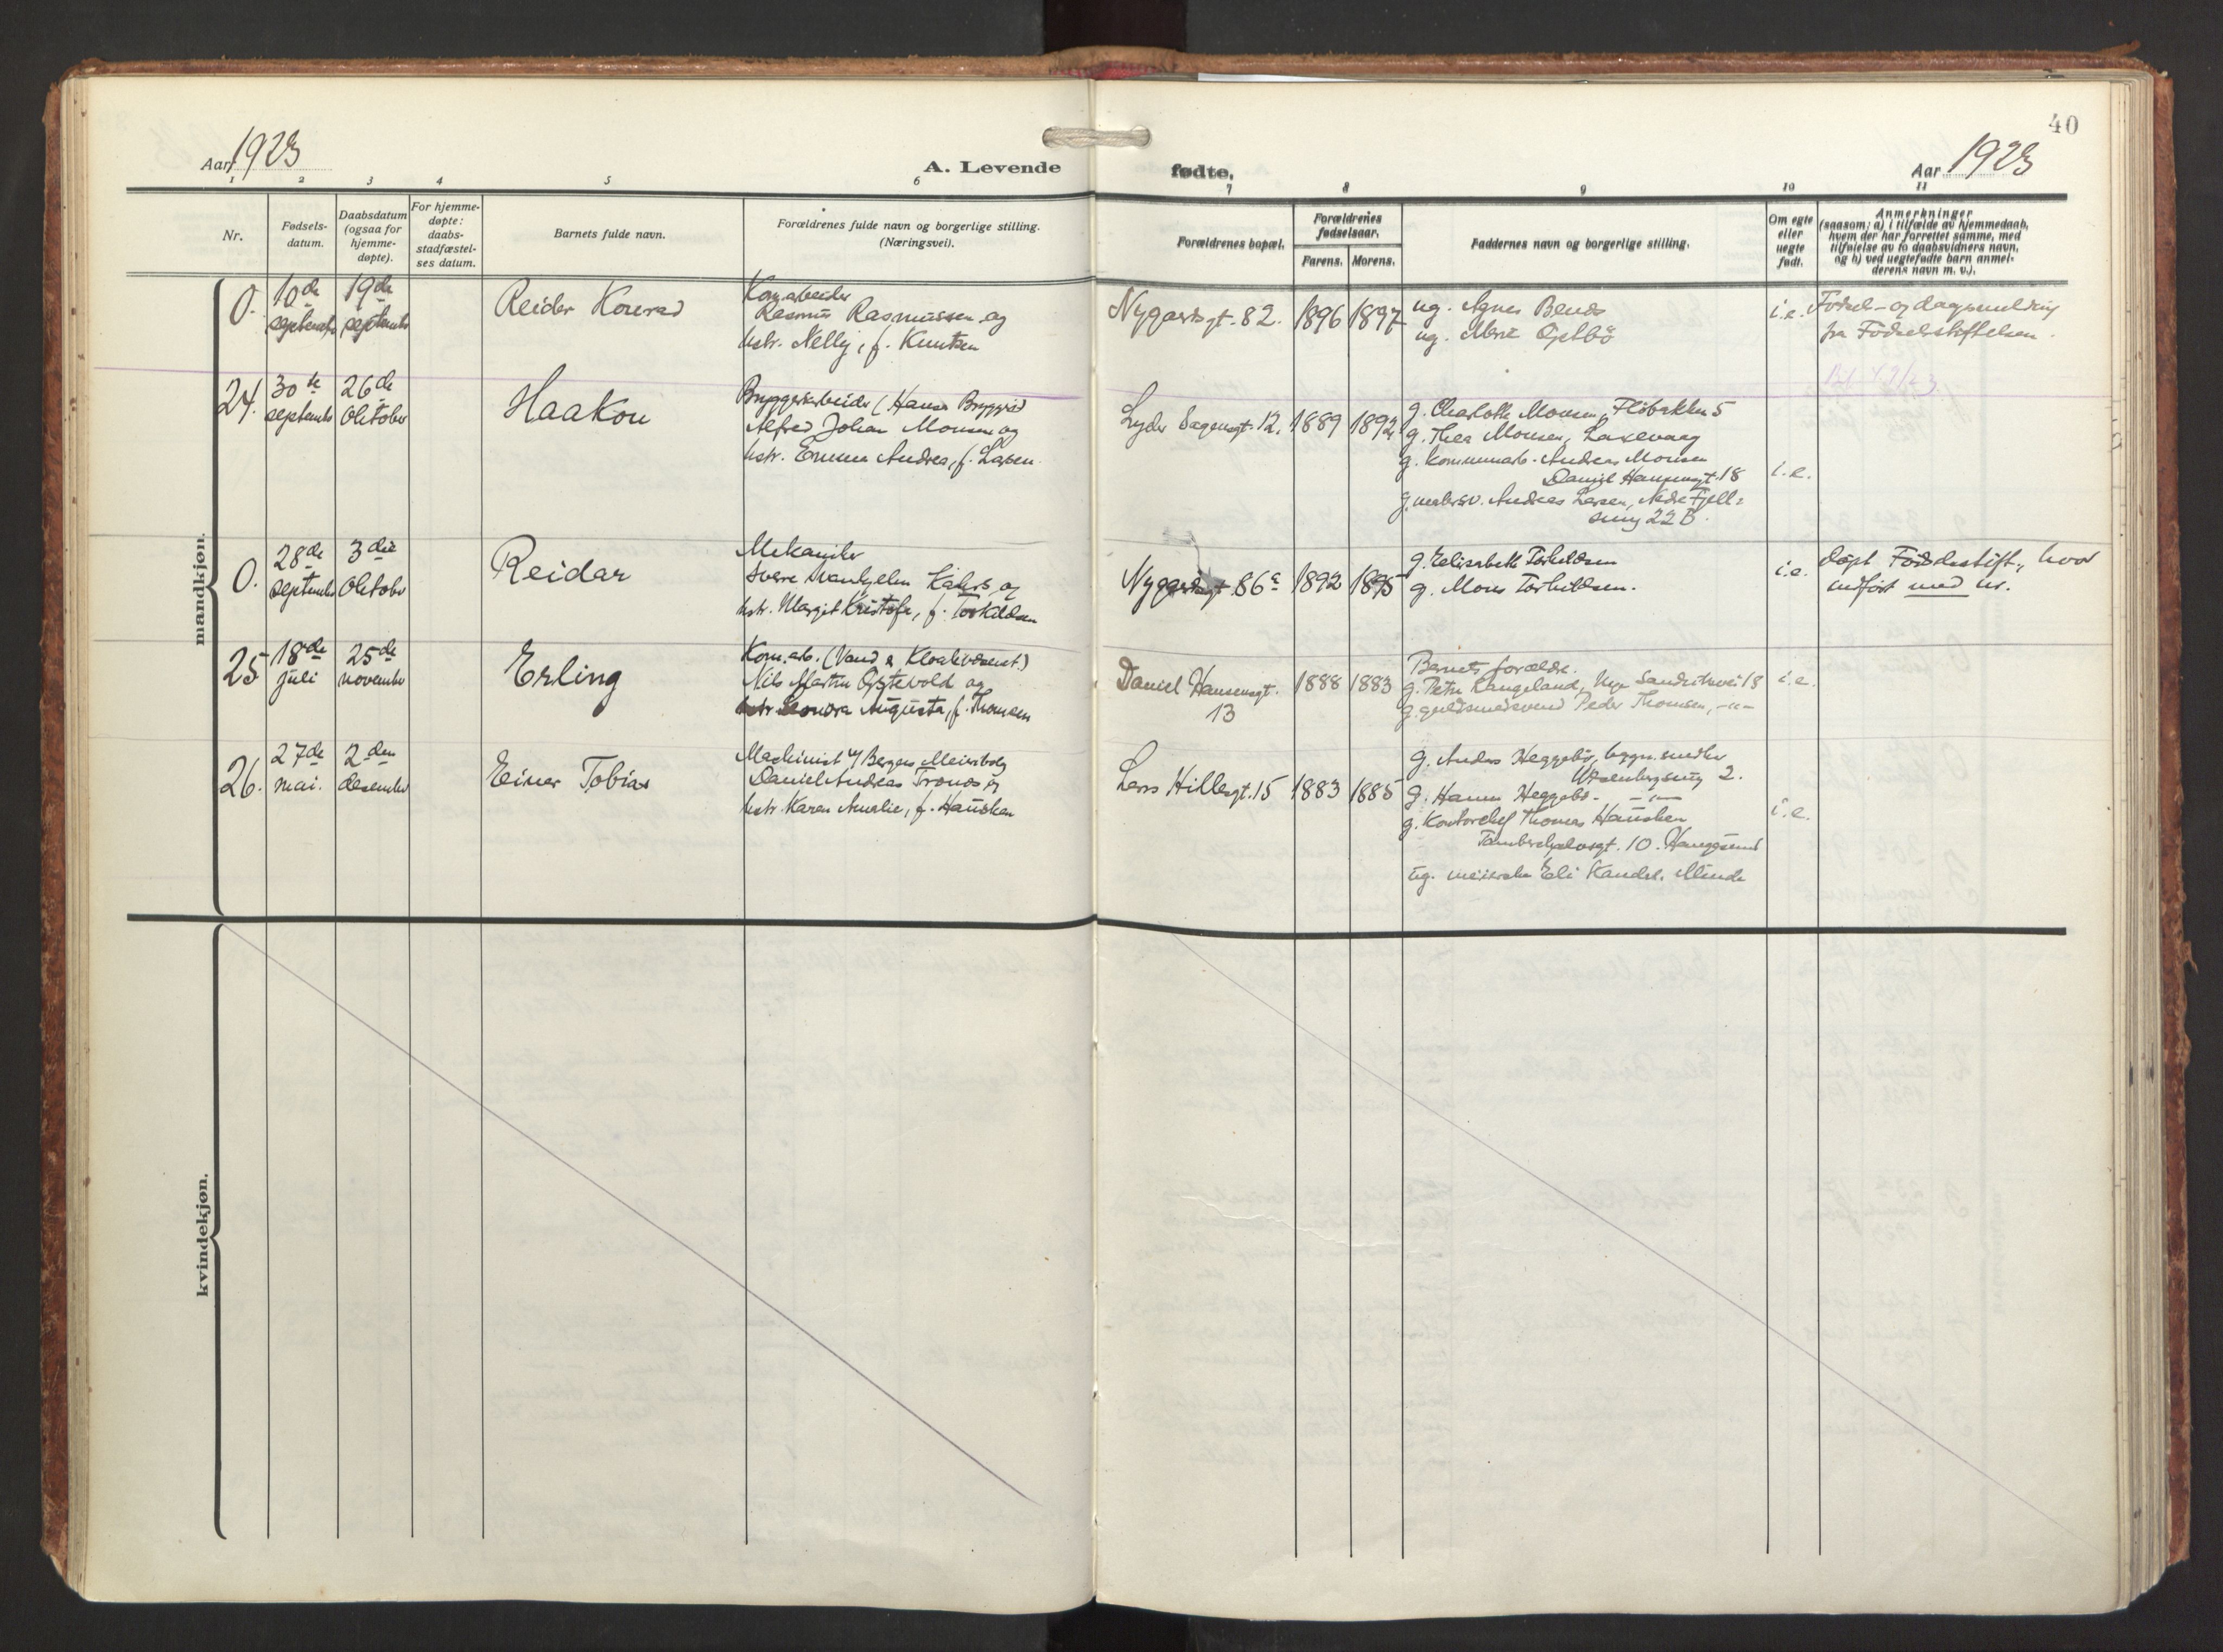 40
Aar 1923
A. Levende
fødte,
Aar 1923
1 2 3 4 5 6 7 8 9 10 11
Nr.
Fødsels-
datum.
Daabsdatum
(ogsaa for
hjemme-
døpte).
For hjemme-
døpte:
daabs-
stadfæstel-
ses datum.
Barnets fulde navn.
Forældrenes fulde navn og borgerlige stilling.
(Næringsvei).
Forældrenes bopæl.
Forældrenes
fødselsaar.
Farens. Morens.
Faddernes navn og borgerlige stilling.
Om egte
eller
uegte
født.
Anmerkninger
(saasom: a) i tilfælde av hjemmedaab,
hvem der har forrettet samme, med
tilføielse av to daabsvidners navn,
og b) ved uegtefødte barn anmel-
derens navn m. v.).
mandkjøn.
0.
10de
september
19de
september
Reidar Konrad
Kom.arbeider
Rasmus Rasmussen og
hstr. Nelly, f. Knutsen
Nygaardsgt. 82.
1896 1897
ug. Agnes
ug.
i.e.
Fødsel- og
fra Fødselsstiftelsen.
24.
30te
september
26de
Oktober
Haakon
Bryggeriarbeider (Hansa Bryggeri)
Alfred Johan Monsen og
hstr. Emma Andrea, f. Larsen.
Lyder Sagensgt. 12.
1889 1892
g. Charlotte Monsen, Fløbakken 5
g. Thea Monsen, Laxevaag
g. kommunearb. Andreas Monsen
Daniel Hansensgt. 18
g. malersv. Andreas Larsen, Nedre Fjell-
smug 22 B.
i.e.
0.
28de
september
3die
Oktober
Reidar
Mekaniker
Sverre og
hstr. Margit f. Torkildsen
Nygaardsgt. 86a
1892 1895
g. Elisabeth Torkildsen
g. Mons Torkildsen.
i.e.
døpt Fødselsstift., hvor
indført med nr.
25
18de
juli
25de
november
Erling
Kom.arb. (Vand & Kloakvæsenet)
Nils Martin og
hstr. Leonora Augusta, f. Thomsen
Daniel Hansensgt.
13
1888 1883
Barnets forældre.
g. Petra Langeland, 18
g. guldsmedsvend Peder Thomsen, -"-
i.e.
26.
27de
mai.
2den
desember
Einar Tobias
Maskinist v/ Bergens Meieribolag
Daniel Andreas og
hstr. Karen Amalie, f. Hausken
Lars Hillesgt. 15
1883 1885
g. Anders Heggebø,
2.
g. Hanna Heggebø. -"-
g. Kontorchef Thomas Hausken
10. Haugesund
ug. Eli Minde
i.e.
kvindekjøn.